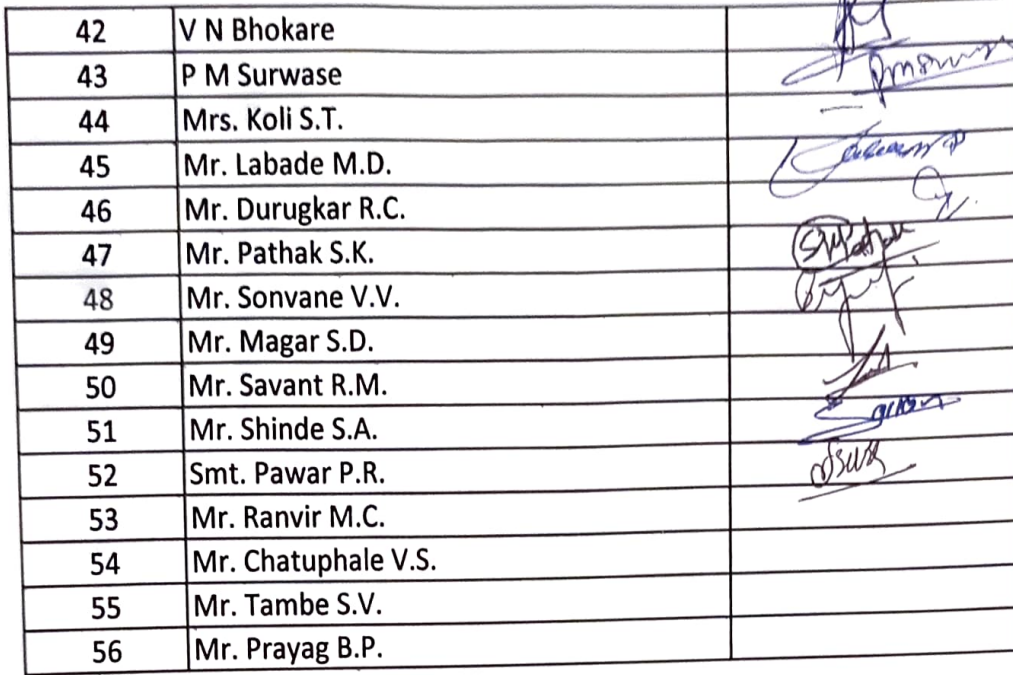 42 V N Bhokare
43 P M Surwase
44 Mrs. Koli S.T.
45 Mr. Labade M.D.
46 Mr. Durugkar R.C.
47 Mr. Pathak S.K.
48 Mr. Sonvane V.V.
49 Mr. Magar S.D.
50 Mr. Savant R.M.
51 Mr. Shinde S.A.
52 Smt. Pawar P.R.
53 Mr. Ranvir M.C.
54 Mr. Chatuphale V.S.
55 Mr. Tambe S.V.
56 Mr. Prayag B.P.